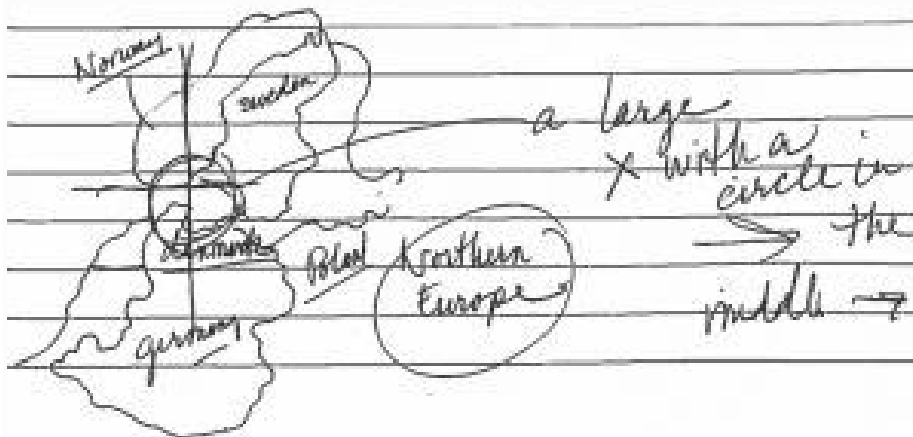 Norway
Sweden
Denmark
germany
Poland
Northern
Europe
a large
X with a
circle in
the
middle →